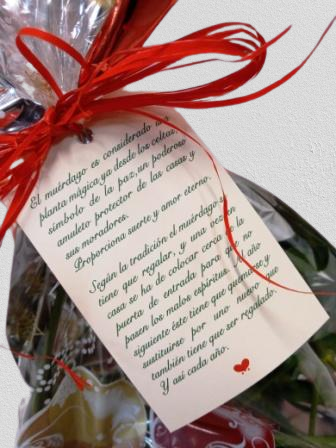 El muérdago es considerado una
planta mágica,ya desde los celtas,
símbolo de la paz,un poderoso
amuleto protector de las casas y
sus moradores.
Proporciona suerte y amor eterno.
Según la tradición el muérdago se
tiene que regalar, y una vez en
casa se ha de colocar cerca de la
puerta de entrada para que no
pasen los malos espíritus. Al año
siguiente éste tiene que quemarse y
sustituirse por uno nuevo que
también tiene que ser regalado.
Y así cada año.